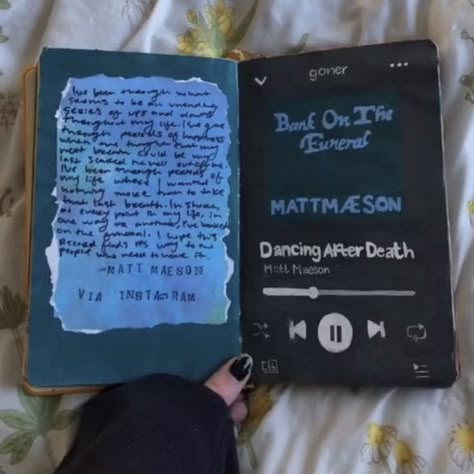 I've been through what
seems to be an unending
series of ups and downs
throughout my life. I've gone
through periods of happiness
when the thought that my
next breath could be my
last scared the hell out of me.
I've been through periods of
my life where I wanted
nothing more than to take
that last breath. In short,
at every point in my life, in
one way or another, I've banked
on the funeral. I hope this
Record finds its way to the
people who need to hear it.
-MATT MAESON
VIA INSTAGRAM
goner
Bank On The
Funeral
MATTMÆSON
Dancing After Death
Matt Maeson